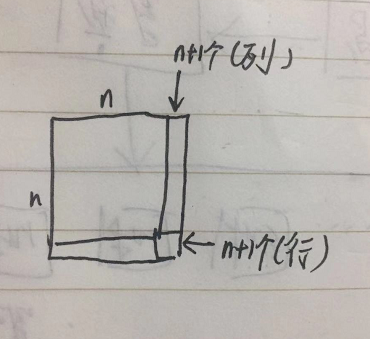 n+1个(列)
n
n
n+1个(行)